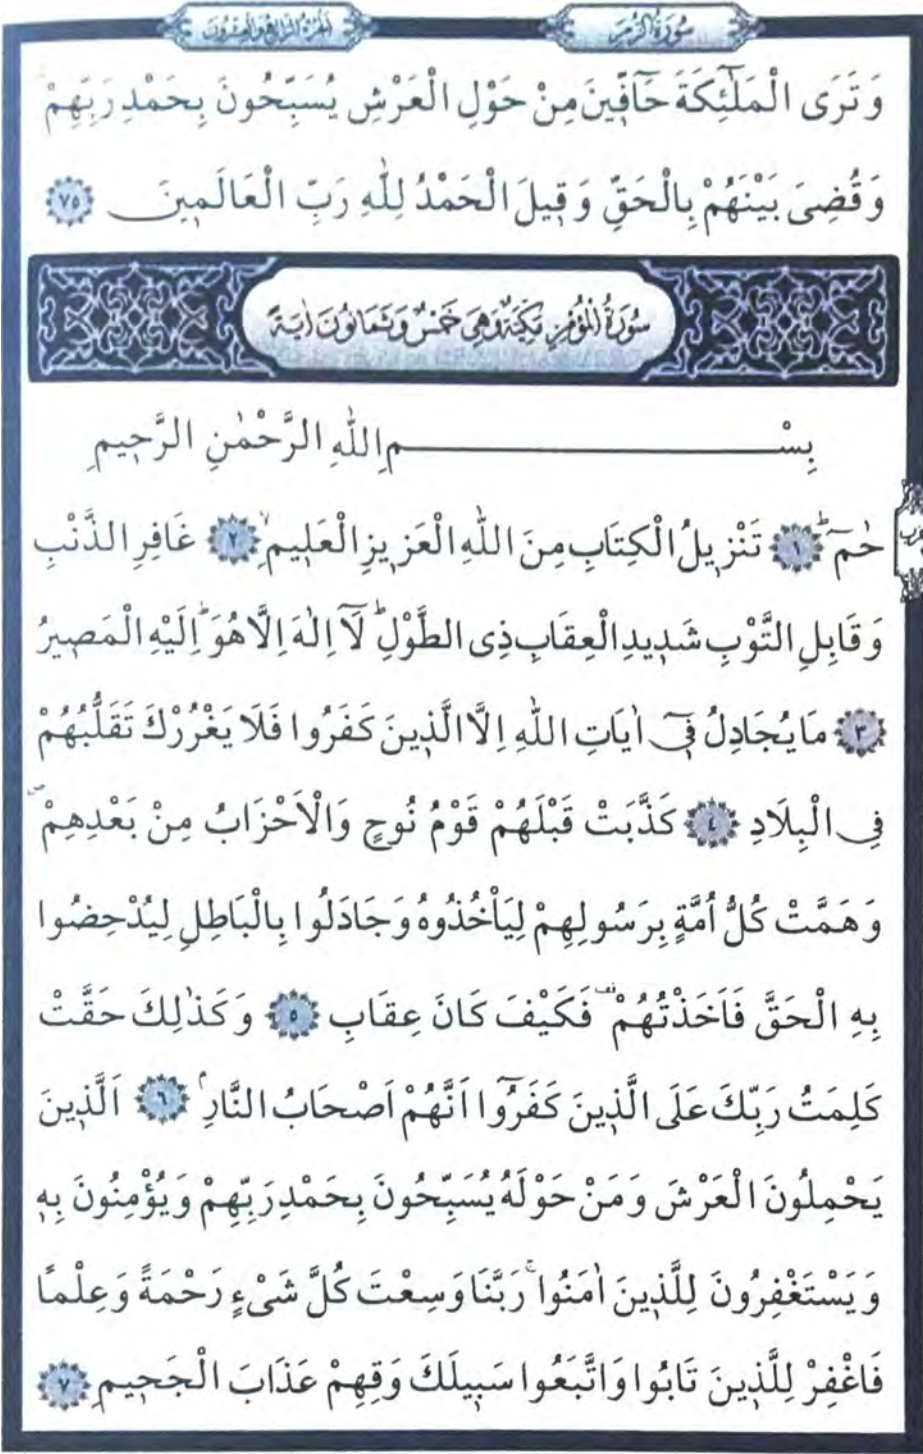 سُورَةُ الزُّمَرِ
اَلْجُزْءُ الرَّابِعُ وَالْعِشْرُونَ
وَتَرَى الْمَلٰٓئِكَةَ حَٓافّ۪ينَ مِنْ حَوْلِ الْعَرْشِ يُسَبِّحُونَ بِحَمْدِ رَبِّهِمْۚ
وَقُضِىَ بَيْنَهُمْ بِالْحَقِّ وَق۪يلَ الْحَمْدُ لِلّٰهِ رَبِّ الْعَالَم۪ينَ ﴿٧٥﴾
سُورَةُ الْمُؤْمِنِ مَكِّيَّةٌ وَهِىَ خَمْسٌ وَثَمَانُونَ اٰيَةً
بِسْمِ اللّٰهِ الرَّحْمٰنِ الرَّح۪يمِ
حٰمٓۜ ﴿١﴾ تَنْز۪يلُ الْكِتَابِ مِنَ اللّٰهِ الْعَز۪يزِ الْعَل۪يمِۙ ﴿٢﴾ غَافِرِ الذَّنْبِ
وَقَابِلِ التَّوْبِ شَد۪يدِ الْعِقَابِ ذِى الطَّوْلِۜ لَٓا اِلٰهَ اِلَّا هُوَۜ اِلَيْهِ الْمَص۪يرُ
﴿٣﴾ مَا يُجَادِلُ ف۪ٓى اٰيَاتِ اللّٰهِ اِلَّا الَّذ۪ينَ كَفَرُوا فَلَا يَغْرُرْكَ تَقَلُّبُهُمْ
فِى الْبِلَادِ ﴿٤﴾ كَذَّبَتْ قَبْلَهُمْ قَوْمُ نُوحٍ وَالْاَحْزَابُ مِنْ بَعْدِهِمْۖ
وَهَمَّتْ كُلُّ اُمَّةٍ بِرَسُولِهِمْ لِيَأْخُذُوهُ وَجَادَلُوا بِالْبَاطِلِ لِيُدْحِضُوا
بِهِ الْحَقَّ فَاَخَذْتُهُمْ۠ فَكَيْفَ كَانَ عِقَابِ ﴿٥﴾ وَكَذٰلِكَ حَقَّتْ
كَلِمَتُ رَبِّكَ عَلَى الَّذ۪ينَ كَفَرُٓوا اَنَّهُمْ اَصْحَابُ النَّارِۢ ﴿٦﴾ اَلَّذ۪ينَ
يَحْمِلُونَ الْعَرْشَ وَمَنْ حَوْلَهُ يُسَبِّحُونَ بِحَمْدِ رَبِّهِمْ وَيُؤْمِنُونَ بِه۪
وَيَسْتَغْفِرُونَ لِلَّذ۪ينَ اٰمَنُواۚ رَبَّنَا وَسِعْتَ كُلَّ شَىْءٍ رَحْمَةً وَعِلْمًا
فَاغْفِرْ لِلَّذ۪ينَ تَابُوا وَاتَّبَعُوا سَب۪يلَكَ وَقِهِمْ عَذَابَ الْجَح۪يمِ ﴿٧﴾